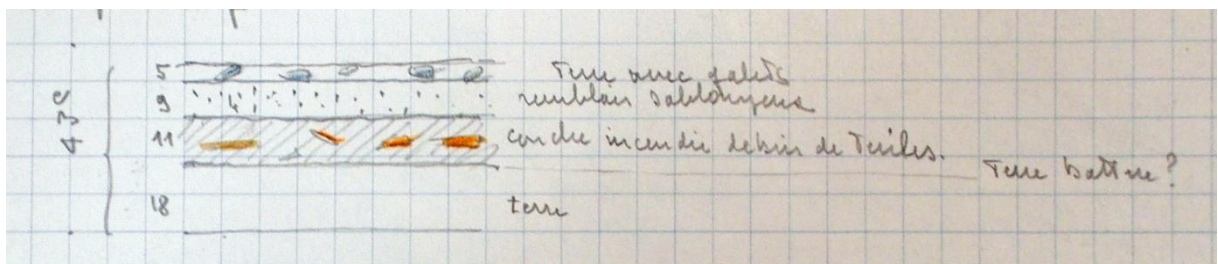 5 Terre avec galets
9 remblais sablonneux
11 couche incendie debris de Tuiles.
Terre battue?
18 terre
43c